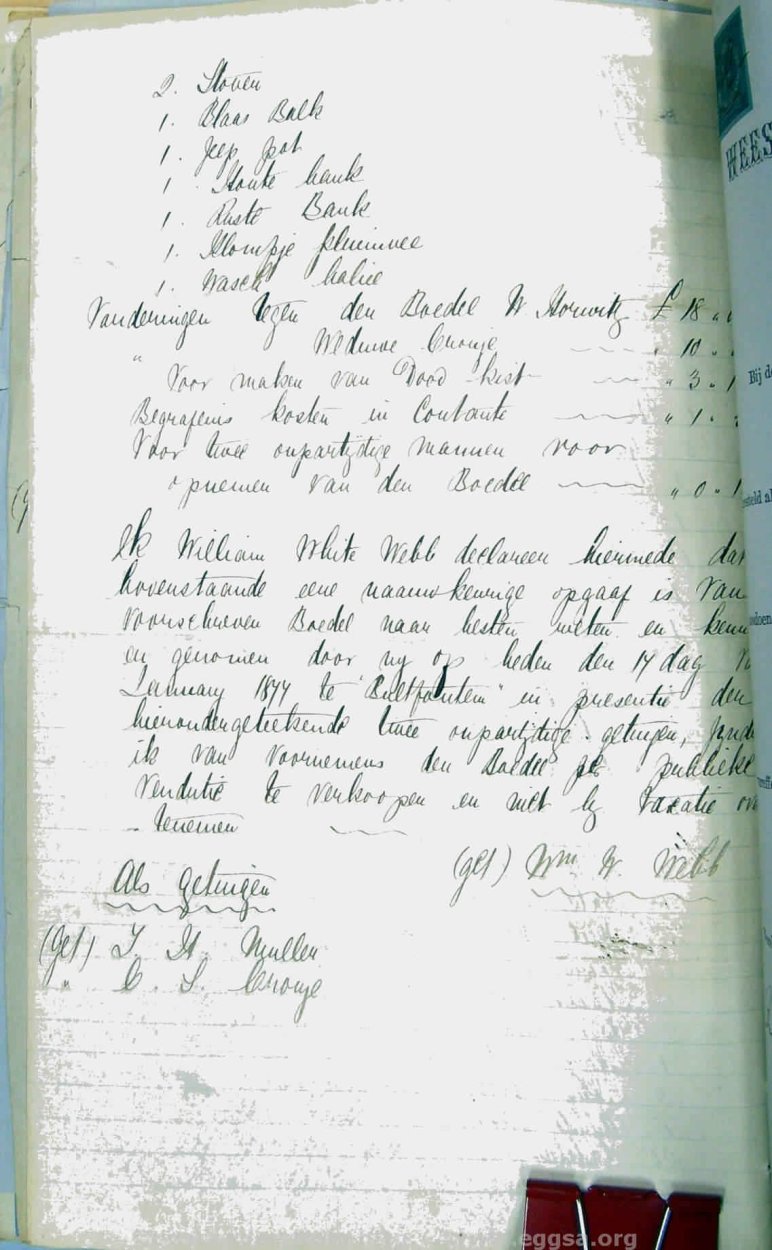 2. Stoven
1. Blaas Balk
1. Zeep pot
1. Houte bank
1. Ruste Bank
1. Klompje pluimvee
1. Wasch balie
Vorderingen tegen den Boedel W. Horwitz £ 18 "
" Weduwe Cronje " 10 " "
Voor maken van Dood kist " 3 " 1
Begrafenis kosten in Contante " 1 "
Voor twee onpartijdige mannen voor
opnemen van den Boedel " 0 " 1
Ik William White Webb declareer hiermede dat
bovenstaande eene naauwkeurige opgaaf is van
voorschreven Boedel naar besten weten en kenn
en genomen door my op heden den 17 dag v
January 1877 te "Bultfontein" in presentie der
hierondergeteekende twee onpartijdige getuigen, zynde
ik van voornemens den Boedel per publieke
Vendutie te verkoopen en niet by taxatie ov
- tenemen
(get) Wm W. Webb
Als getuigen
(Get) J. H. Muller
" C. S. Cronje
WEES
Bij d
eggsa.org